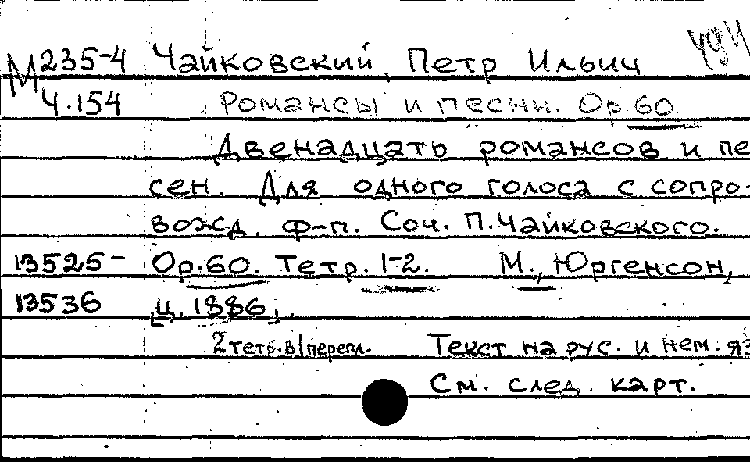 М 235-4 Чайковский, Петр Ильич
Ч.154 Романсы и песни. Ор.60
Двенадцать романсов и пе
сен. Для одного голоса с сопро-
вожд. ф-п. Соч. П.Чайковского.
13525- Ор.60. Тетр. 1-2. М., Юргенсон,
13536 ц. 1886.
2 тетр.в 1 перепл. Текст на рус. и нем. яз
См. след. карт.